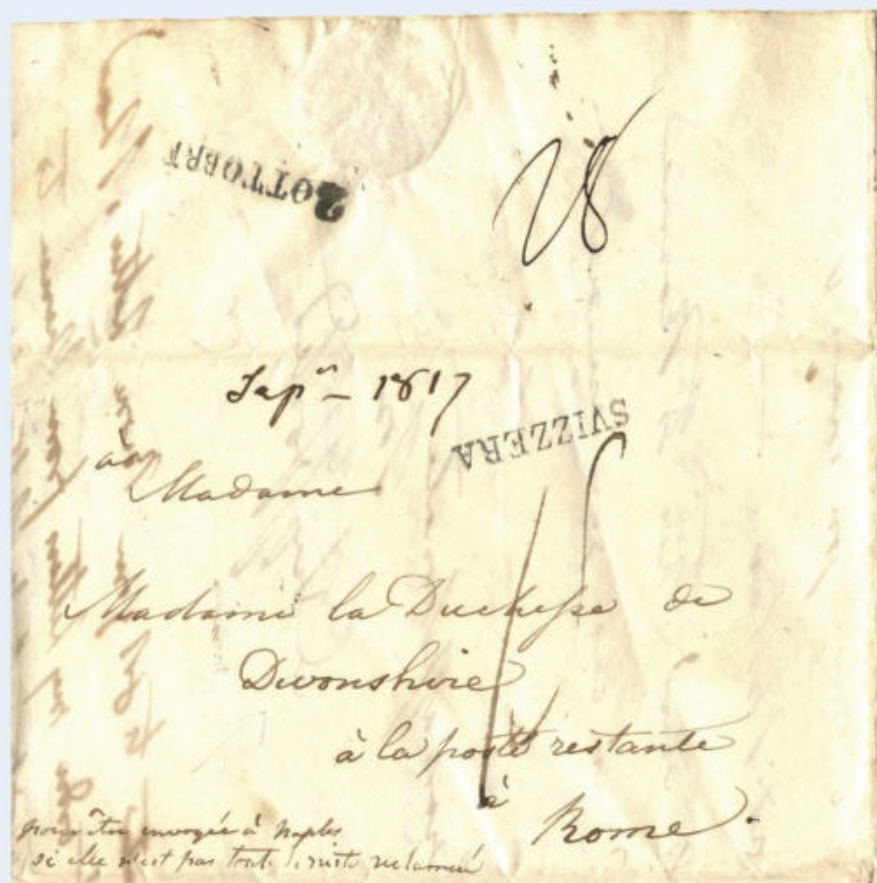 2 OTTOBRE
28
Sepᵗ – 1817
SVIZZERA
à
Madame
Madame la Duchesse de
Devonshire
à la poste restante
à
Rome.
pour être envoyée à Naples
si elle n'est pas tout de suite reclamée